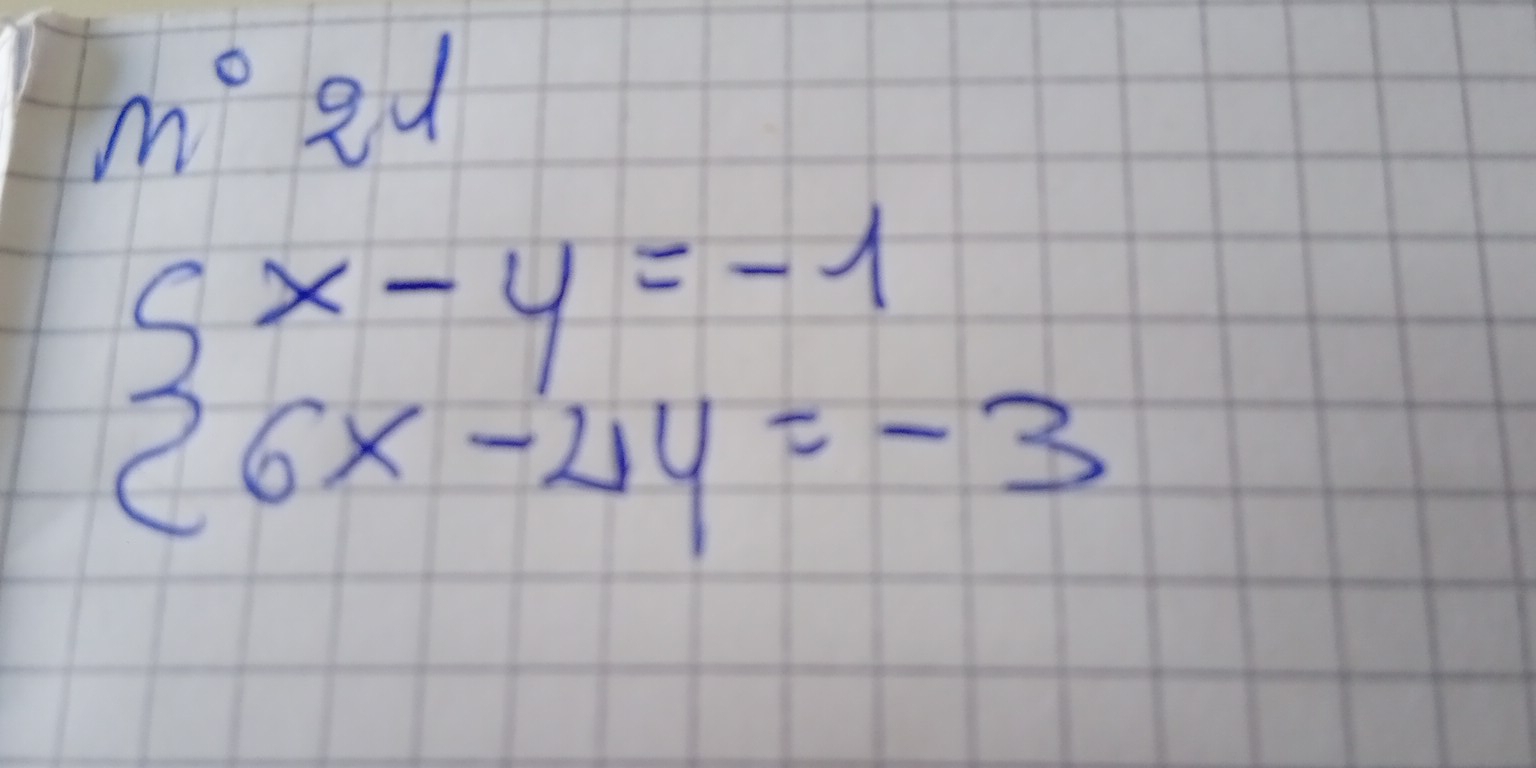 n° 21
x - y = -1
6x - 4y = -3